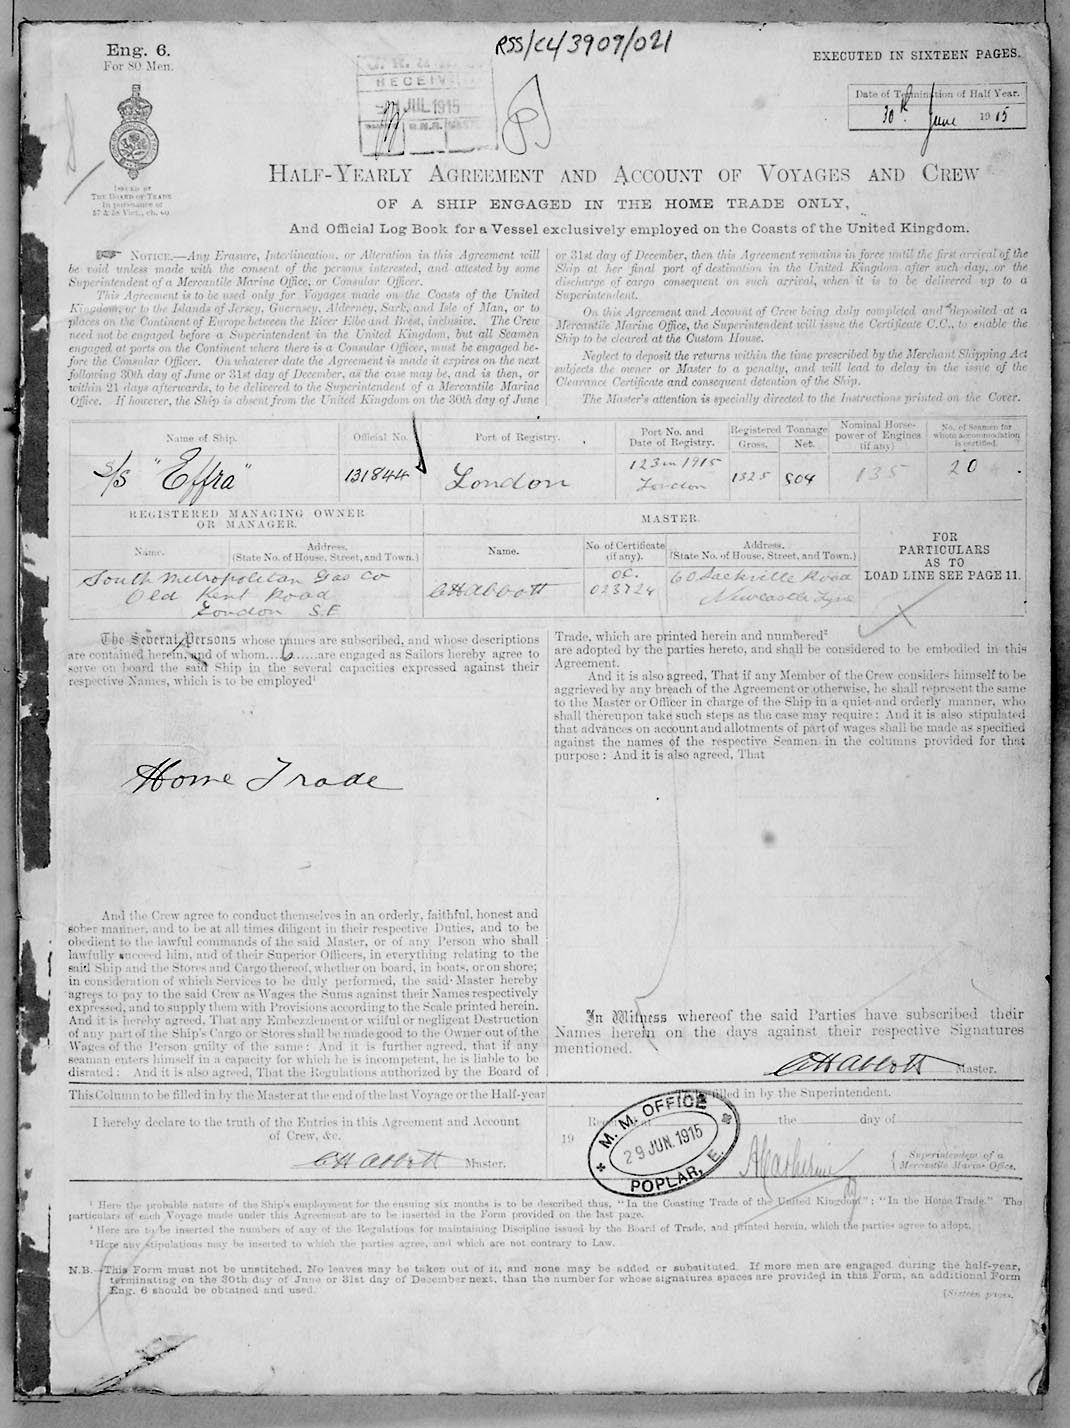 RSS/CL/3909/021
Eng. 6.
For 80 Men.
EXECUTED IN SIXTEEN PAGES.
RECEIVED
JUL 1915
Date of Termination of Half Year.
30th June 1915
ISSUED BY
THE BOARD OF TRADE
In pursuance of
57 & 58 Vict., ch. 60
HALF-YEARLY AGREEMENT AND ACCOUNT OF VOYAGES AND CREW
OF A SHIP ENGAGED IN THE HOME TRADE ONLY,
And Official Log Book for a Vessel exclusively employed on the Coasts of the United Kingdom.
NOTICE.—Any Erasure, Interlineation, or Alteration in this Agreement will
be void unless made with the consent of the persons interested, and attested by some
Superintendent of a Mercantile Marine Office, or Consular Officer.
This Agreement is to be used only for Voyages made on the Coasts of the United
Kingdom, or to the Islands of Jersey, Guernsey, Alderney, Sark, and Isle of Man, or to
places on the Continent of Europe between the River Elbe and Brest, inclusive. The Crew
need not be engaged before a Superintendent in the United Kingdom, but all Seamen
engaged at ports on the Continent where there is a Consular Officer, must be engaged be-
fore the Consular Officer. On whatever date the Agreement is made it expires on the next
following 30th day of June or 31st day of December, as the case may be, and is then, or
within 21 days afterwards, to be delivered to the Superintendent of a Mercantile Marine
Office. If however, the Ship is absent from the United Kingdom on the 30th day of June
or 31st day of December, then this Agreement remains in force until the first arrival of the
Ship at her final port of destination in the United Kingdom after such day, or the
discharge of cargo consequent on such arrival, when it is to be delivered up to a
Superintendent.
On this Agreement and Account of Crew being duly completed and deposited at a
Mercantile Marine Office, the Superintendent will issue the Certificate C.C., to enable the
Ship to be cleared at the Custom House.
Neglect to deposit the returns within the time prescribed by the Merchant Shipping Act
subjects the owner or Master to a penalty, and will lead to delay in the issue of the
Clearance Certificate and consequent detention of the Ship.
The Master's attention is specially directed to the Instructions printed on the Cover.
Name of Ship.
Official No.
Port of Registry.
Port No. and
Date of Registry.
Registered Tonnage
Gross.
Net.
Nominal Horse-
power of Engines
(if any)
No. of Seamen for
whom accommodation
is certified.
s/s "Effra"
131844
London
123 in 1915
London
1325
804
135
20
REGISTERED MANAGING OWNER
OR MANAGER.
MASTER.
Name.
Address.
(State No. of House, Street, and Town.)
Name.
No. of Certificate
(if any).
Address.
(State No. of House, Street, and Town.)
FOR
PARTICULARS
AS TO
LOAD LINE SEE PAGE 11.
South Metropolitan Gas Co
Old Kent Road
London S.E
C H Abbott
O.C.
023724
60 Sackville Road
Newcastle Tyne
The Several Persons whose names are subscribed, and whose descriptions
are contained herein, and of whom....6......are engaged as Sailors hereby agree to
serve on board the said Ship in the several capacities expressed against their
respective Names, which is to be employed¹
Home Trade
And the Crew agree to conduct themselves in an orderly, faithful, honest and
sober manner, and to be at all times diligent in their respective Duties, and to be
obedient to the lawful commands of the said Master, or of any Person who shall
lawfully succeed him, and of their Superior Officers, in everything relating to the
said Ship and the Stores and Cargo thereof, whether on board, in boats, or on shore;
in consideration of which Services to be duly performed, the said Master hereby
agrees to pay to the said Crew as Wages the Sums against their Names respectively
expressed, and to supply them with Provisions according to the Scale printed herein.
And it is hereby agreed, That any Embezzlement or wilful or negligent Destruction
of any part of the Ship's Cargo or Stores shall be made good to the Owner out of the
Wages of the Person guilty of the same: And it is further agreed, that if any
seaman enters himself in a capacity for which he is incompetent, he is liable to be
disrated: And it is also agreed, That the Regulations authorized by the Board of
Trade, which are printed herein and numbered²
are adopted by the parties hereto, and shall be considered to be embodied in this
Agreement.
And it is also agreed, That if any Member of the Crew considers himself to be
aggrieved by any breach of the Agreement or otherwise, he shall represent the same
to the Master or Officer in charge of the Ship in a quiet and orderly manner, who
shall thereupon take such steps as the case may require: And it is also stipulated
that advances on account and allotments of part of wages shall be made as specified
against the names of the respective Seamen in the columns provided for that
purpose: And it is also agreed, That
In Witness whereof the said Parties have subscribed their
Names herein on the days against their respective Signatures
mentioned.
C H Abbott Master.
This Column to be filled in by the Master at the end of the last Voyage or the Half-year
I hereby declare to the truth of the Entries in this Agreement and Account
of Crew, &c.
C H Abbott Master.
filled in by the Superintendent.
the day of
19
M. M. OFFICE
29 JUN. 1915
POPLAR, E.
Superintendent of a
Mercantile Marine Office.
¹ Here the probable nature of the Ship's employment for the ensuing six months is to be described thus, "In the Coasting Trade of the United Kingdom"; "In the Home Trade." The
particulars of each Voyage made under this Agreement are to be inserted in the Form provided on the last page.
² Here are to be inserted the numbers of any of the Regulations for maintaining Discipline issued by the Board of Trade, and printed herein, which the parties agree to adopt.
³ Here any stipulations may be inserted to which the parties agree, and which are not contrary to Law.
N.B.—This Form must not be unstitched. No leaves may be taken out of it, and none may be added or substituted. If more men are engaged during the half-year,
terminating on the 30th day of June or 31st day of December next, than the number for whose signatures spaces are provided in this Form, an additional Form
Eng. 6 should be obtained and used.
[Sixteen pages.